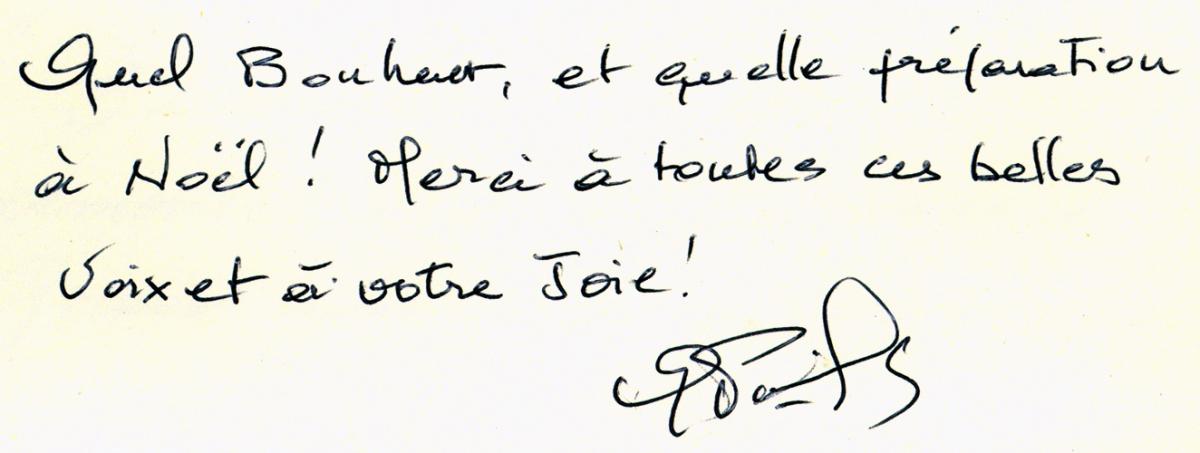 Quel Bonheur, et quelle préparation
à Noël ! Merci à toutes ces belles
Voix et à votre Joie !